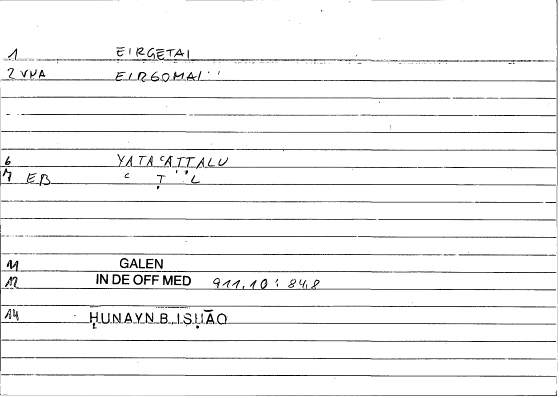 1 EIRGETAI
2 VMA EIRGOMAI
6 YATAʿATTALU
7 EB ʿ Ṭ L
11 GALEN
12 IN DE OFF MED 911.10 : 84.8
14 ḤUNAYN B. ISḤĀQ